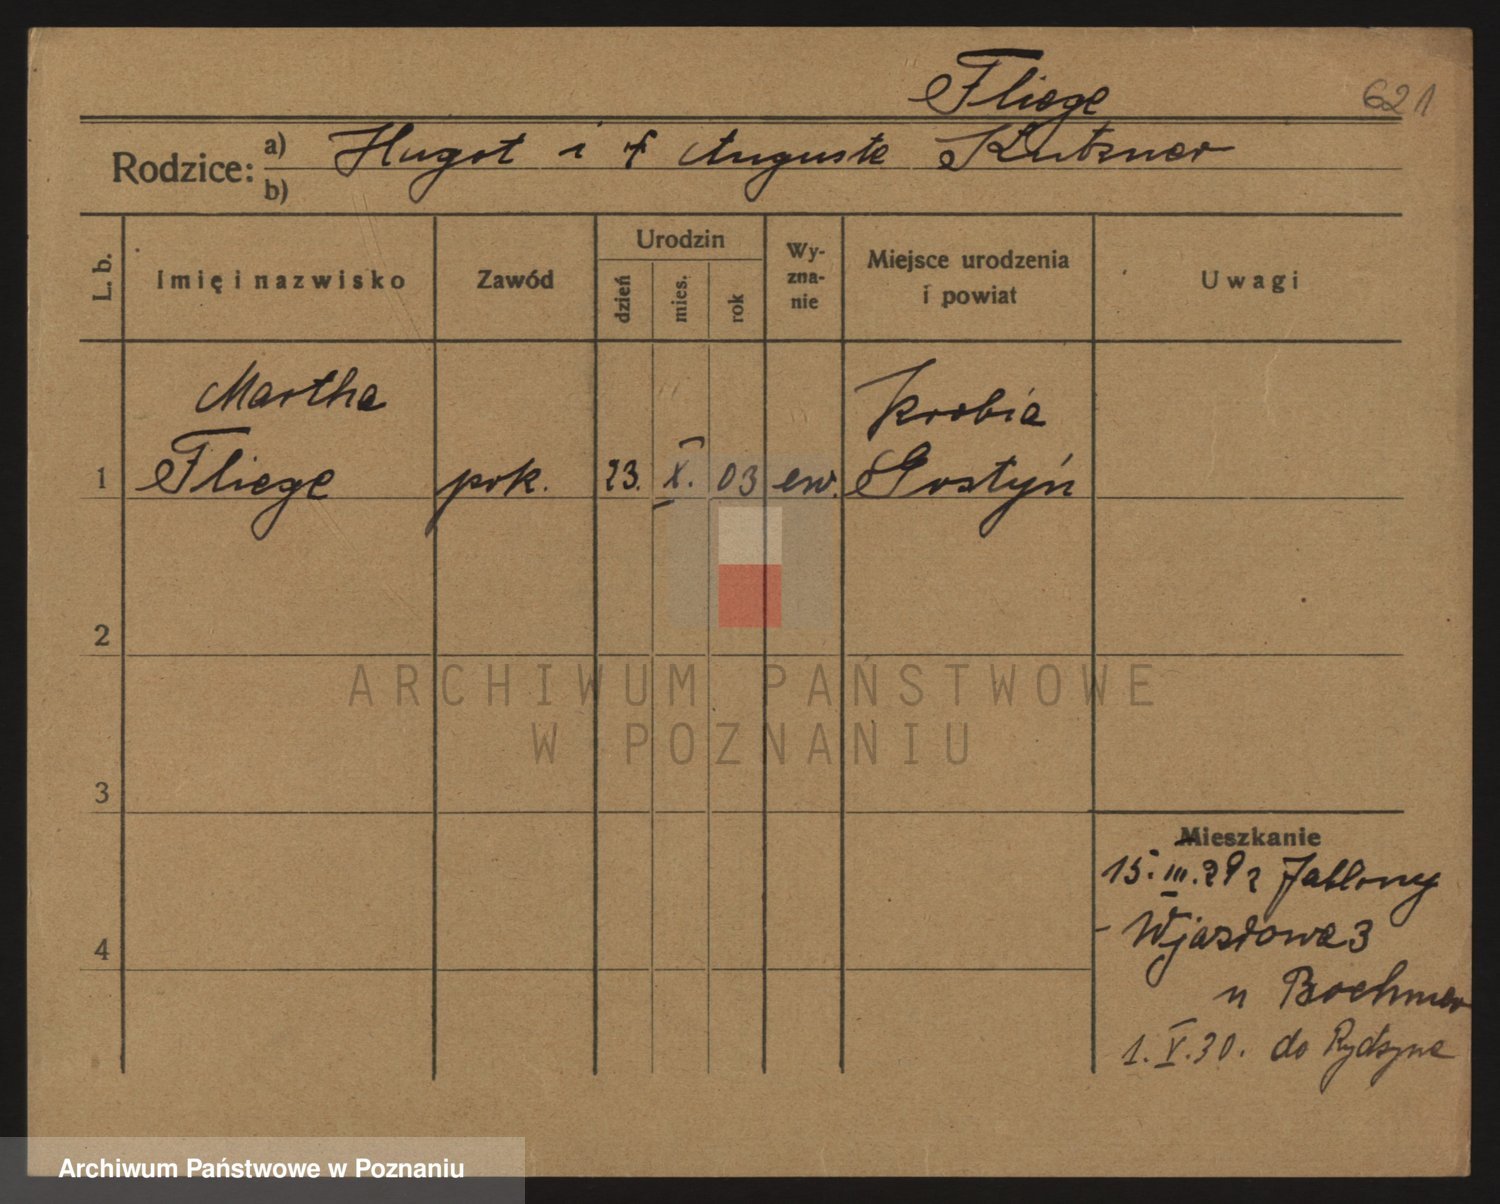 Fliege
621
Rodzice:
a) Hugot i f Auguste Kutzner
b)
L. b.
Imię i nazwisko
Zawód
Urodzin
dzień
mies.
rok
Wy-
zna-
nie
Miejsce urodzenia
i powiat
Uwagi
Martha
Krobia
1 Fliege pok. 23. X. 03 ew. Gostyń
2
ARCHIWUM PAŃSTWOWE
W POZNANIU
3
Mieszkanie
15. III. 29 z Jablony
4
- Wjazdowa 3
u Boehmer
1. V. 30. do Rydzyne
Archiwum Państwowe w Poznaniu